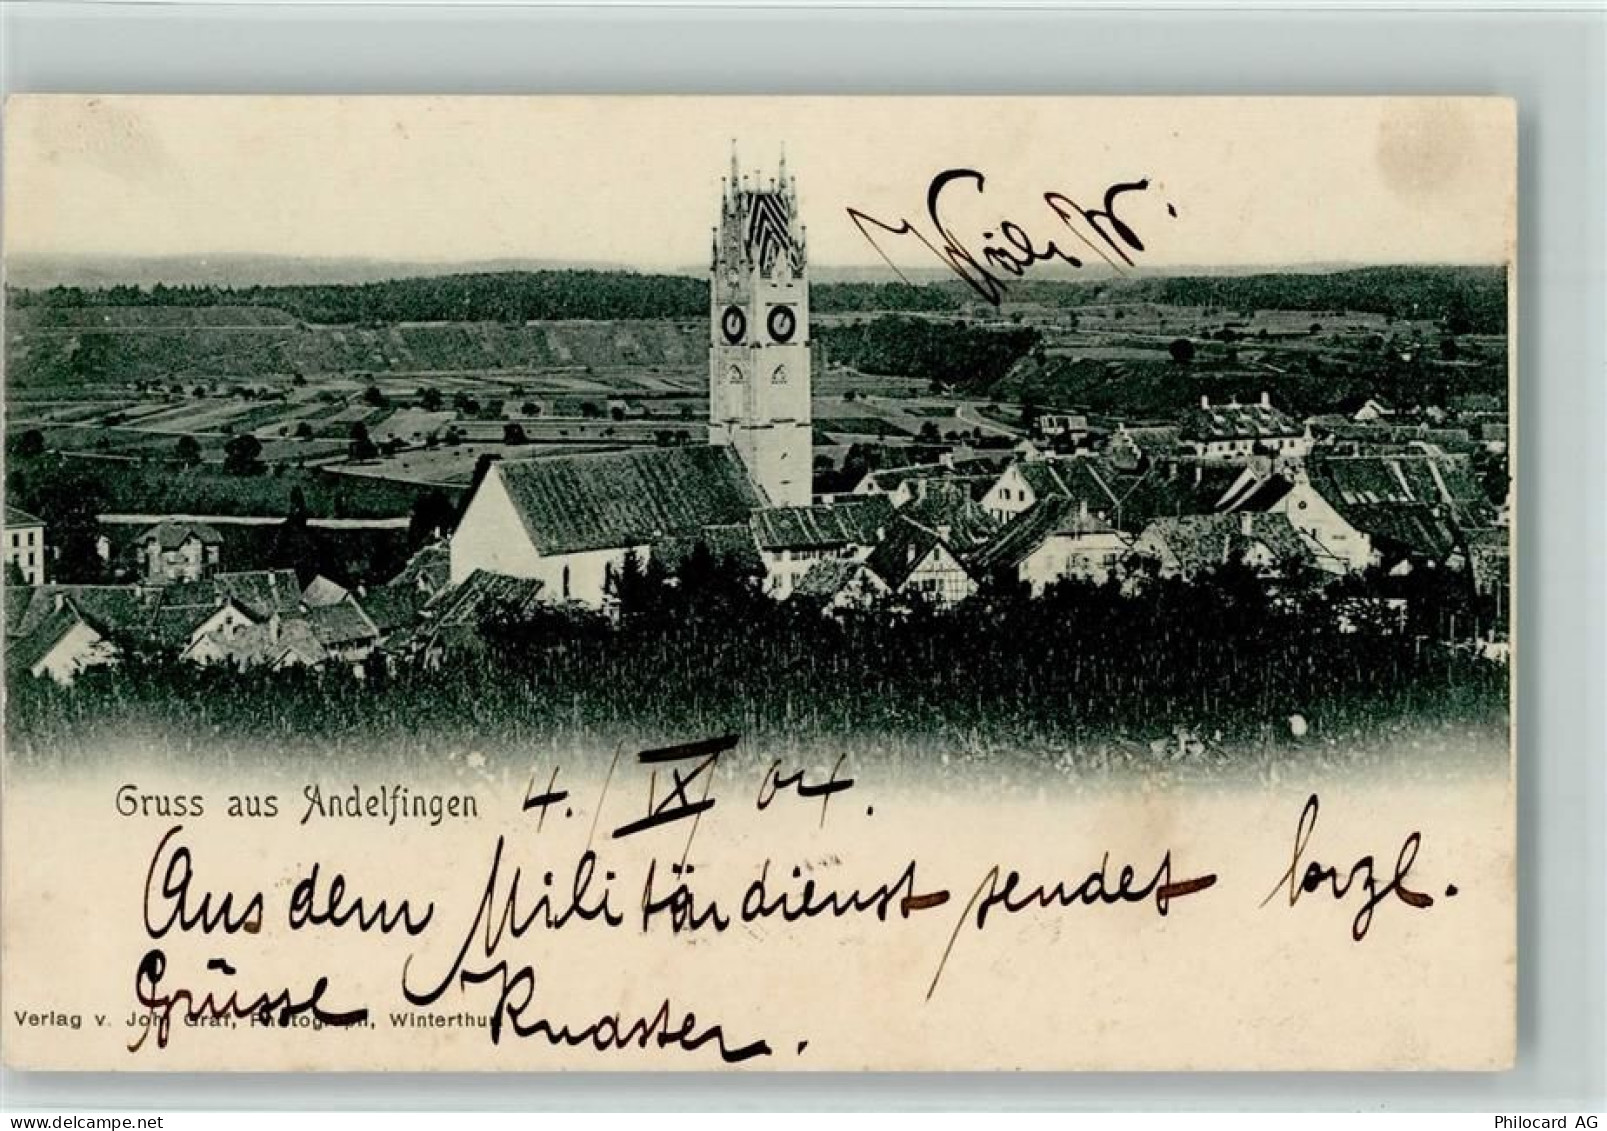 Gruss aus Andelfingen 4. / IX / 04.
Aus dem Militärdienst sendet herzl.
Grüsse Knaster.
Verlag v. Joh. Graf, Photograph, Winterthur
delcampe.net
Philocard AG